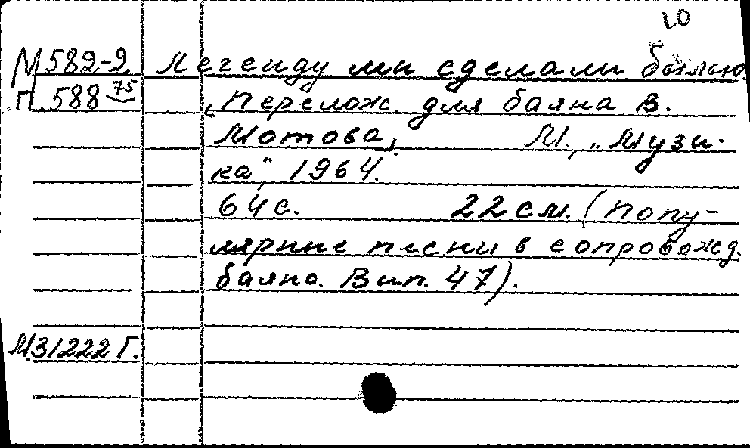 20
М 582-2 Легенду мы сделали былью
П 588 75 „Перелож. для баяна В.
Мотова, М., „Музы-
ка", 1964.
64с. 22 см. (Попу-
лярные песни в сопровожд.
баяна. Вып. 47).
М31222Г.